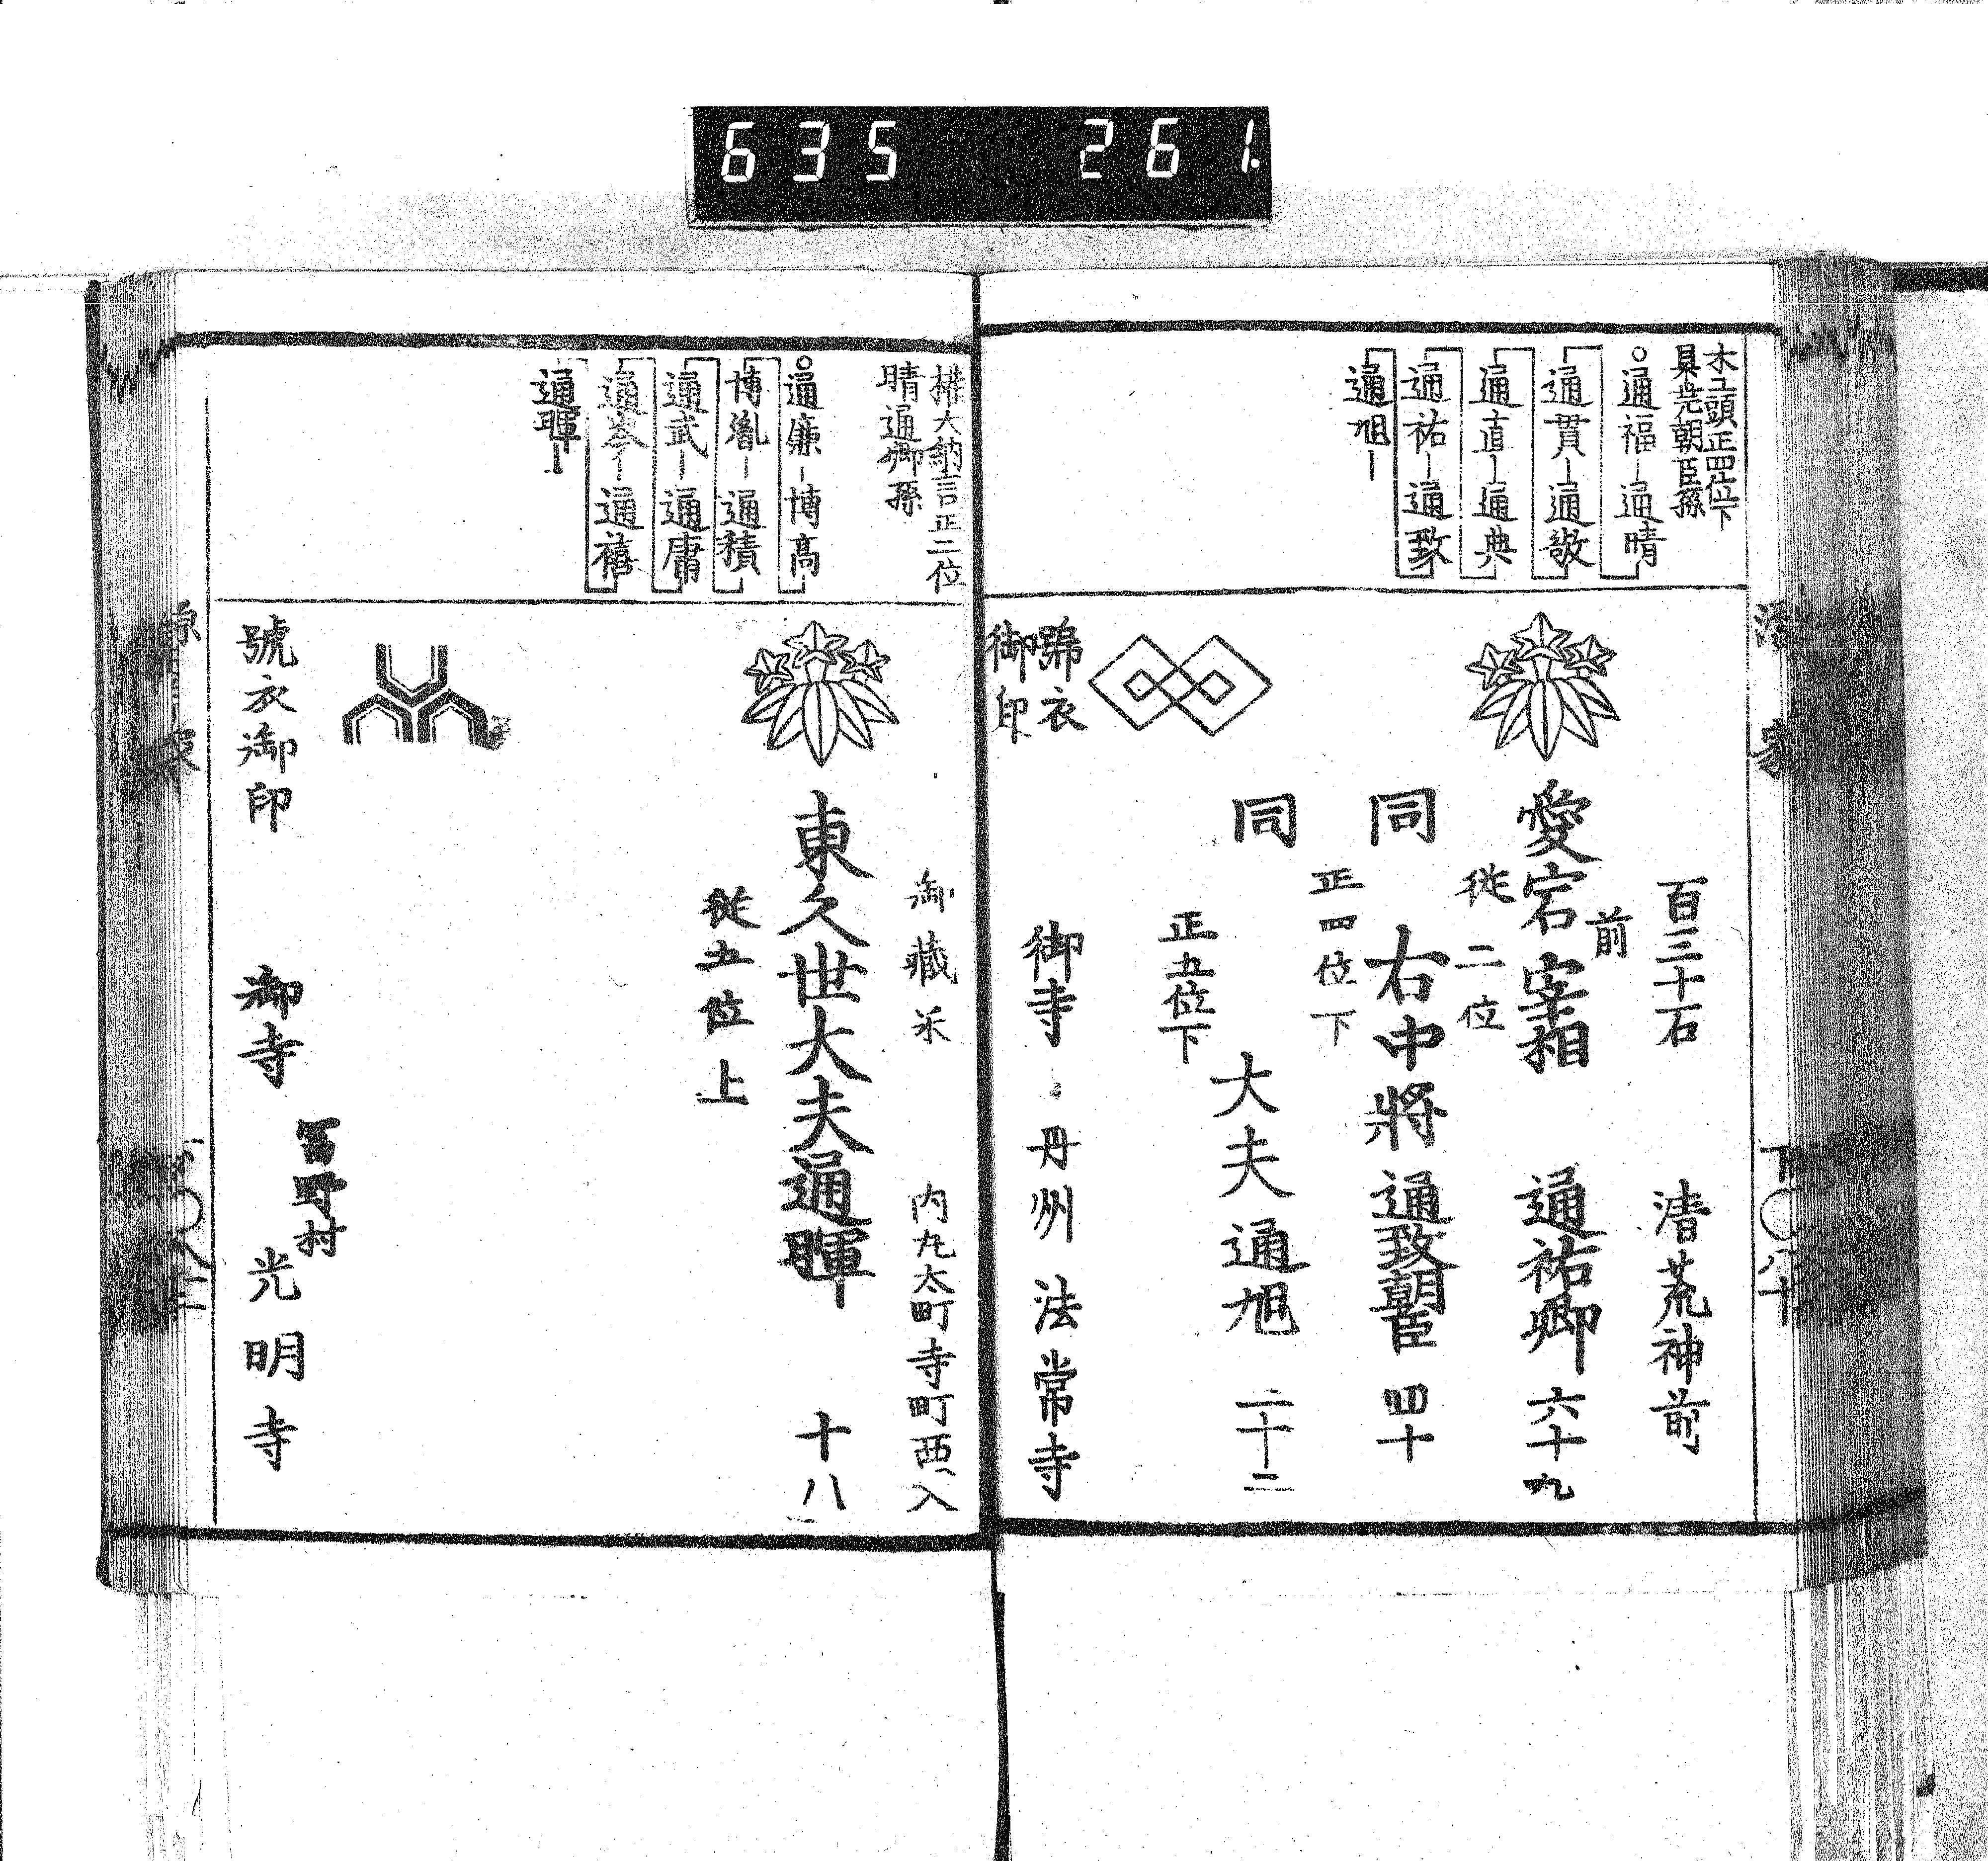 635 261.
木工頭正四位下
具堯朝臣孫
通福－通晴
通貫－通敬
通直－通典
通祐－通致
通旭－
百三十石 清荒神前
前
愛宕宰相 通祐卿 六十九
従二位
同 右中將 通致朝臣 四十
正四位下
同 大夫 通旭 二十二
正五位下
號衣
御印
御寺 丹州 法常寺
下〇八十
権大納言正二位
晴通卿孫
通廉－博高
博胤－通積
通武－通庸
通岑－通禧
通暉－
御蔵米 内丸太町寺町西入
東久世大夫通暉 十八
従五位上
號衣御印
御寺 冨野村 光明寺